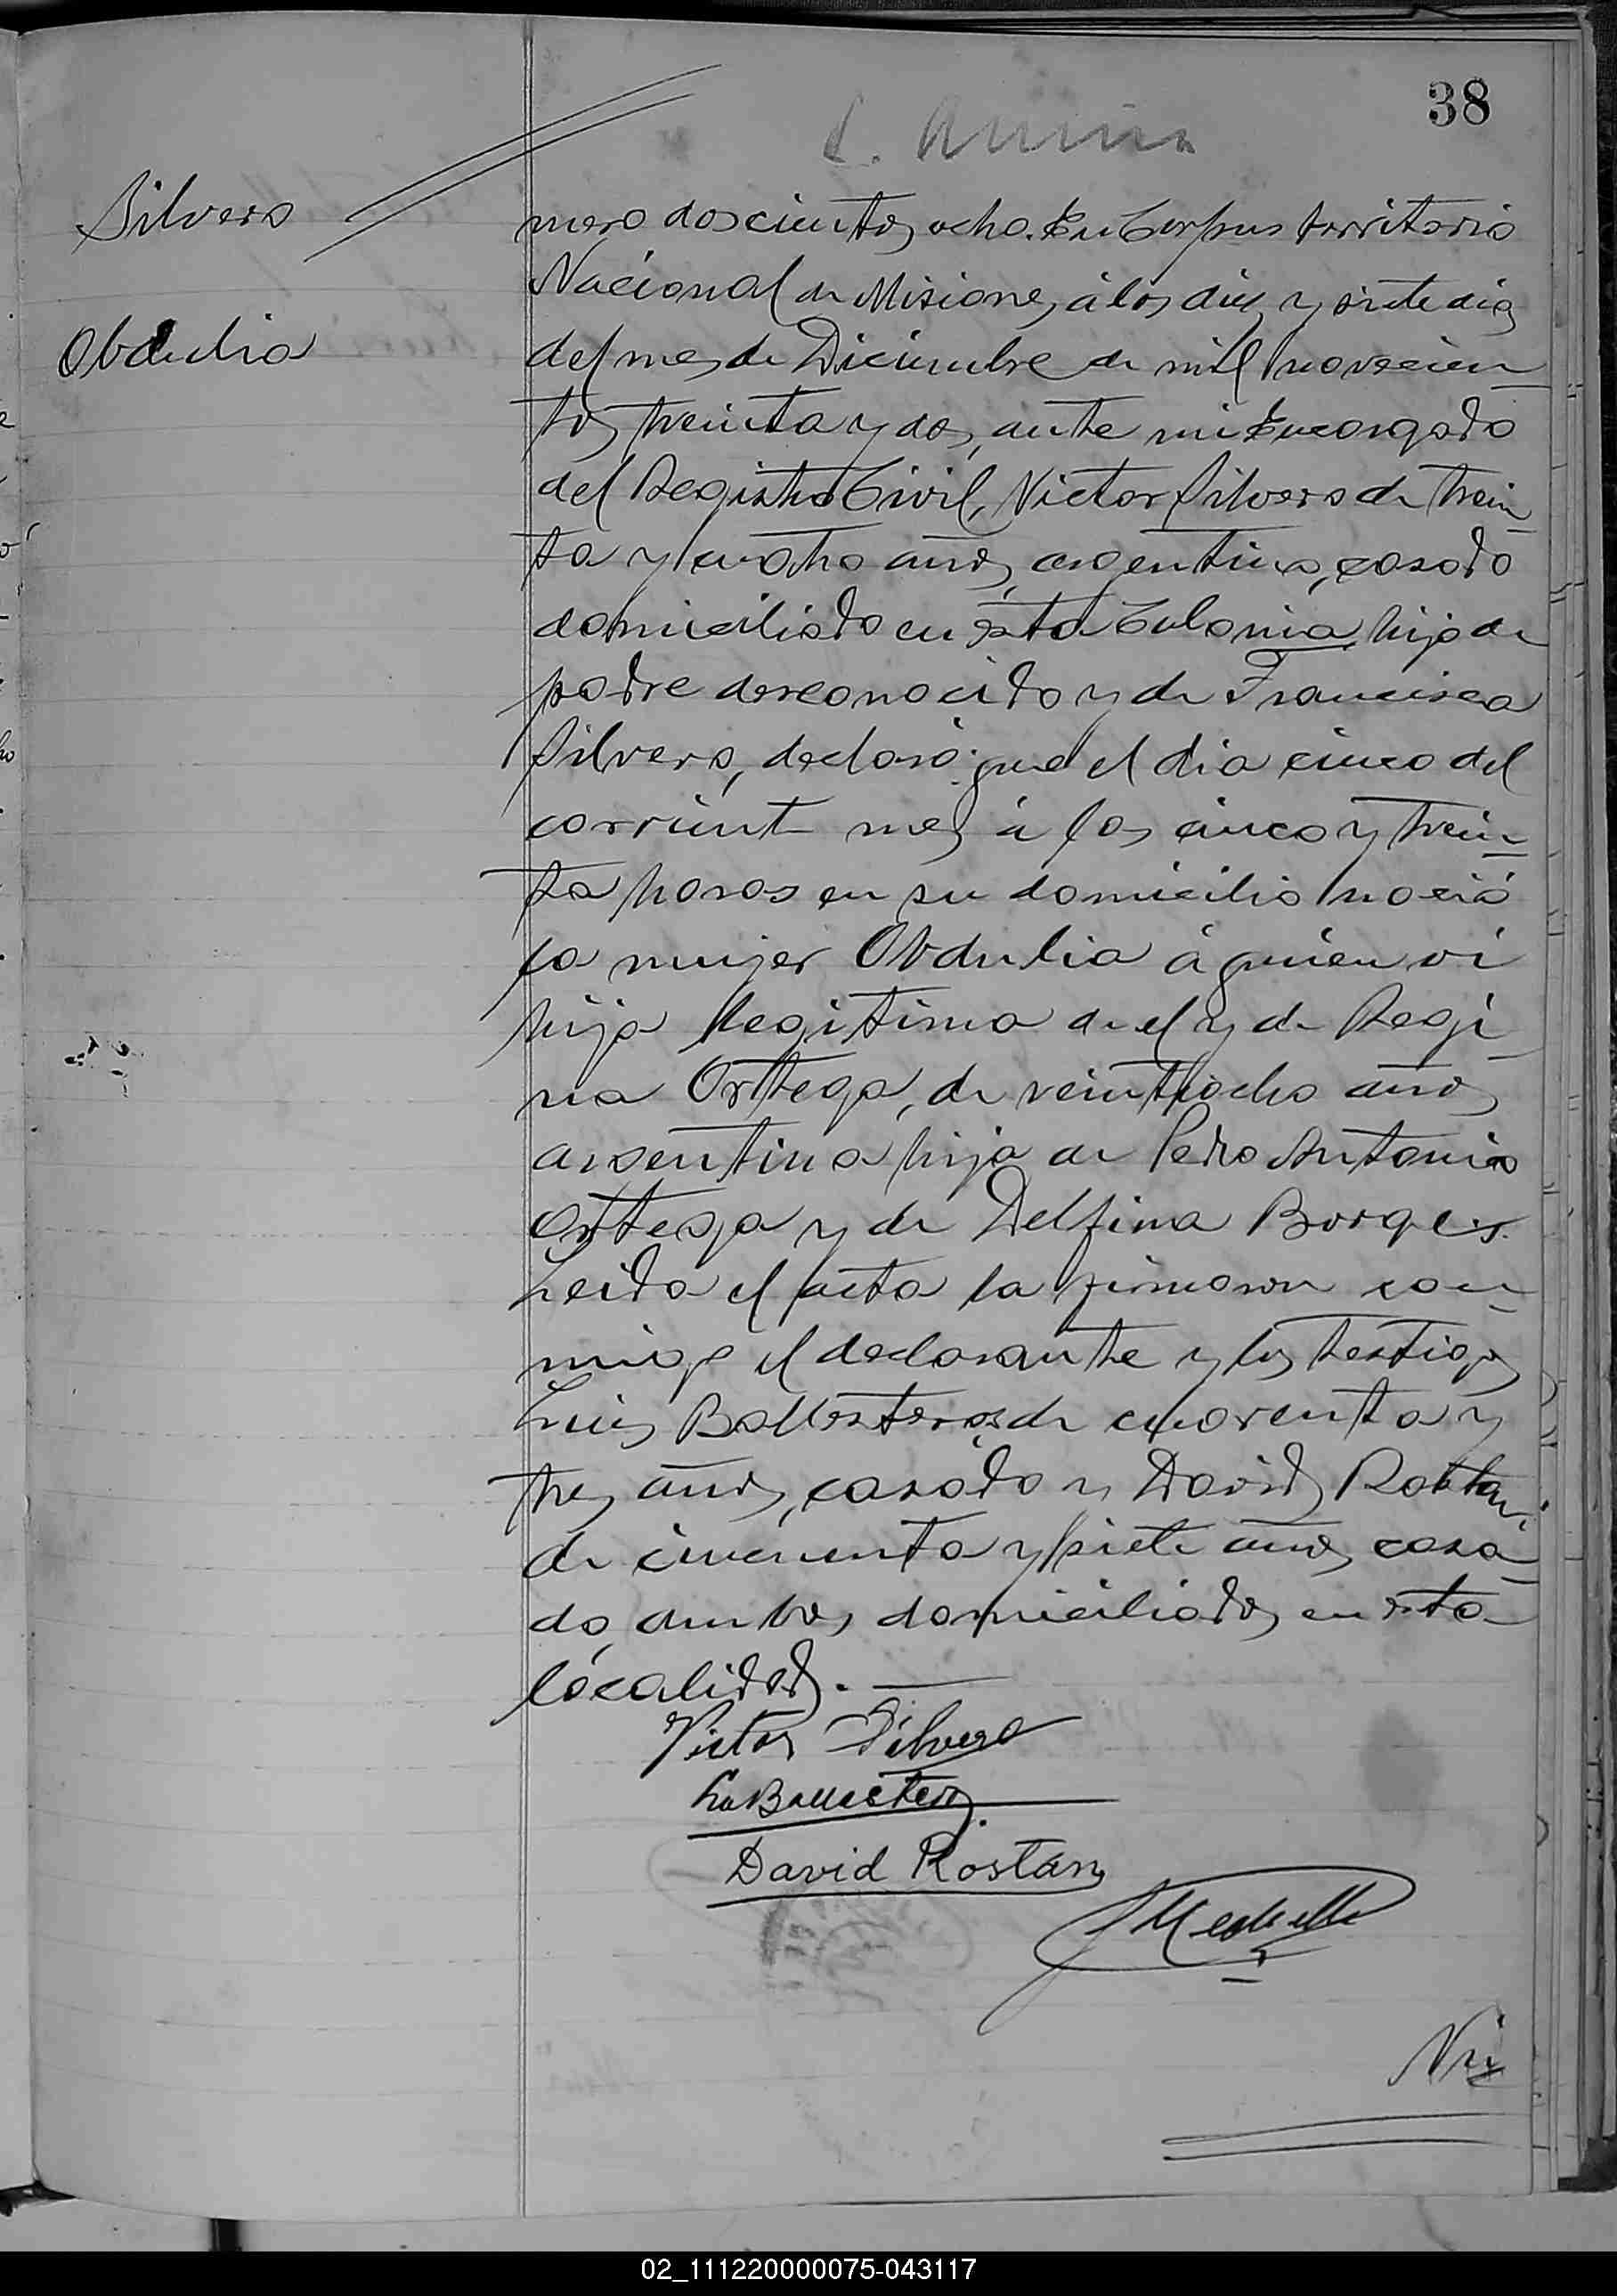 38
Silvero
Obdulia
mero doscientos ocho. En Corpus territorio
Nacional de Misiones, á los diez y siete dias
del mes de Diciembre de mil novecien
tos treinta y dos, ante mi Encargado
del Registro Civil, Victor Silvero de trein
ta y cuatro años, argentino, casado
domiciliado en esta Colonia, hijo de
padre desconocido y de Francisca
Silvero, declaró: que el dia cinco del
corriente mes á las cinco y trein
ta horas en su domicilio nació
la mujer Obdulia á quien vi
hija legitima de el y de Regi
na Ortega, de veintiocho años
argentina hija de Pedro Antonio
Ortega y de Delfina Borges.
Leida el acta la firmaron con
migo el declarante y los testigos
Luis Ballesteros de cuarenta y
tres años, casado y David Rostan
de cincuenta y siete años casa
do, ambos domiciliados en esta
localidad. —
Victor Silvero
Ballesteros
David Rostán
Nú
02_111220000075-043117